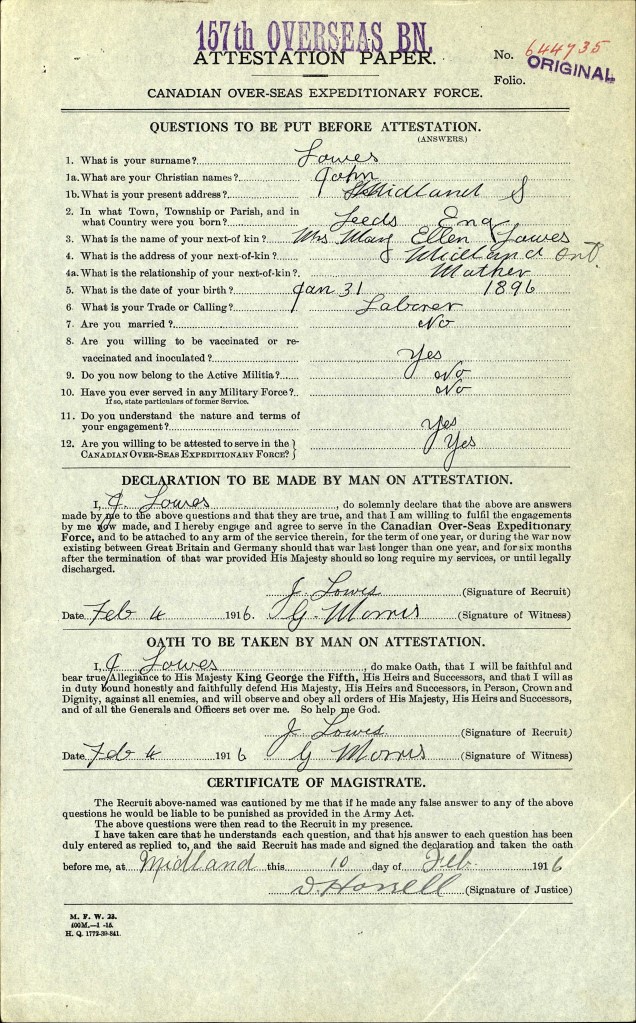 157th OVERSEAS BN.
ATTESTATION PAPER.
No. 644735
ORIGINAL
Folio.
CANADIAN OVER-SEAS EXPEDITIONARY FORCE.
QUESTIONS TO BE PUT BEFORE ATTESTATION.
(ANSWERS.)
1. What is your surname? Lowes
1a. What are your Christian names? John
1b. What is your present address? Midland
2. In what Town, Township or Parish, and in
what Country were you born? Leeds Eng
3. What is the name of your next-of kin? Mrs Mary Ellen Lowes
4. What is the address of your next-of-kin? Midland Ont.
4a. What is the relationship of your next-of-kin? Mother
5. What is the date of your birth? Jan 31 1896
6. What is your Trade or Calling? Laborer
7. Are you married? No
8. Are you willing to be vaccinated or re-
vaccinated and inoculated? Yes
9. Do you now belong to the Active Militia? No
10. Have you ever served in any Military Force? No
If so, state particulars of former Service.
11. Do you understand the nature and terms of
your engagement? Yes
12. Are you willing to be attested to serve in the
CANADIAN OVER-SEAS EXPEDITIONARY FORCE? Yes
DECLARATION TO BE MADE BY MAN ON ATTESTATION.
I, J. Lowes, do solemnly declare that the above are answers
made by me to the above questions and that they are true, and that I am willing to fulfil the engagements
by me now made, and I hereby engage and agree to serve in the Canadian Over-Seas Expeditionary
Force, and to be attached to any arm of the service therein, for the term of one year, or during the war now
existing between Great Britain and Germany should that war last longer than one year, and for six months
after the termination of that war provided His Majesty should so long require my services, or until legally
discharged.
J. Lowes (Signature of Recruit)
Date Feb 4 1916. G. Morris (Signature of Witness)
OATH TO BE TAKEN BY MAN ON ATTESTATION.
I, J Lowes, do make Oath, that I will be faithful and
bear true Allegiance to His Majesty King George the Fifth, His Heirs and Successors, and that I will as
in duty bound honestly and faithfully defend His Majesty, His Heirs and Successors, in Person, Crown and
Dignity, against all enemies, and will observe and obey all orders of His Majesty, His Heirs and Successors,
and of all the Generals and Officers set over me. So help me God.
J. Lowes (Signature of Recruit)
Date Feb 4 1916 G Morris (Signature of Witness)
CERTIFICATE OF MAGISTRATE.
The Recruit above-named was cautioned by me that if he made any false answer to any of the above
questions he would be liable to be punished as provided in the Army Act.
The above questions were then read to the Recruit in my presence.
I have taken care that he understands each question, and that his answer to each question has been
duly entered as replied to, and the said Recruit has made and signed the declaration and taken the oath
before me, at Midland this 10 day of Feb. 1916
(Signature of Justice)
M. F. W. 23.
400M.—1-15.
H. Q. 1772-39-841.